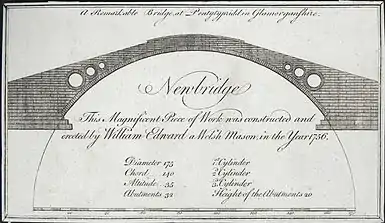 A Remarkable Bridge, at Pontytypridd in Glamorganſhire.
Newbridge
This Magnificent Piece of Work was constructed and
erected by William Edward a Welsh Mason, in the Year 1756.
Diameter 175 Cylinder
Chord 140 Cylinder
Altitude 35 Cylinder
Abutments 32 Height of the Abutments 20